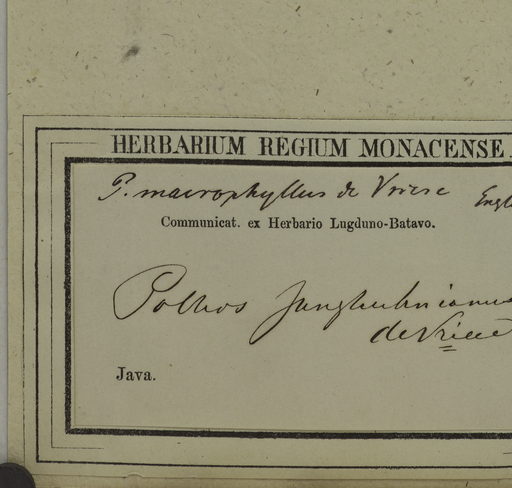 HERBARIUM REGIUM MONACENSE.
P. macrophyllus de Vriese Engl
Communicat. ex Herbario Lugduno-Batavo.
Pothos Junghuhnianus
de Vriese
Java.